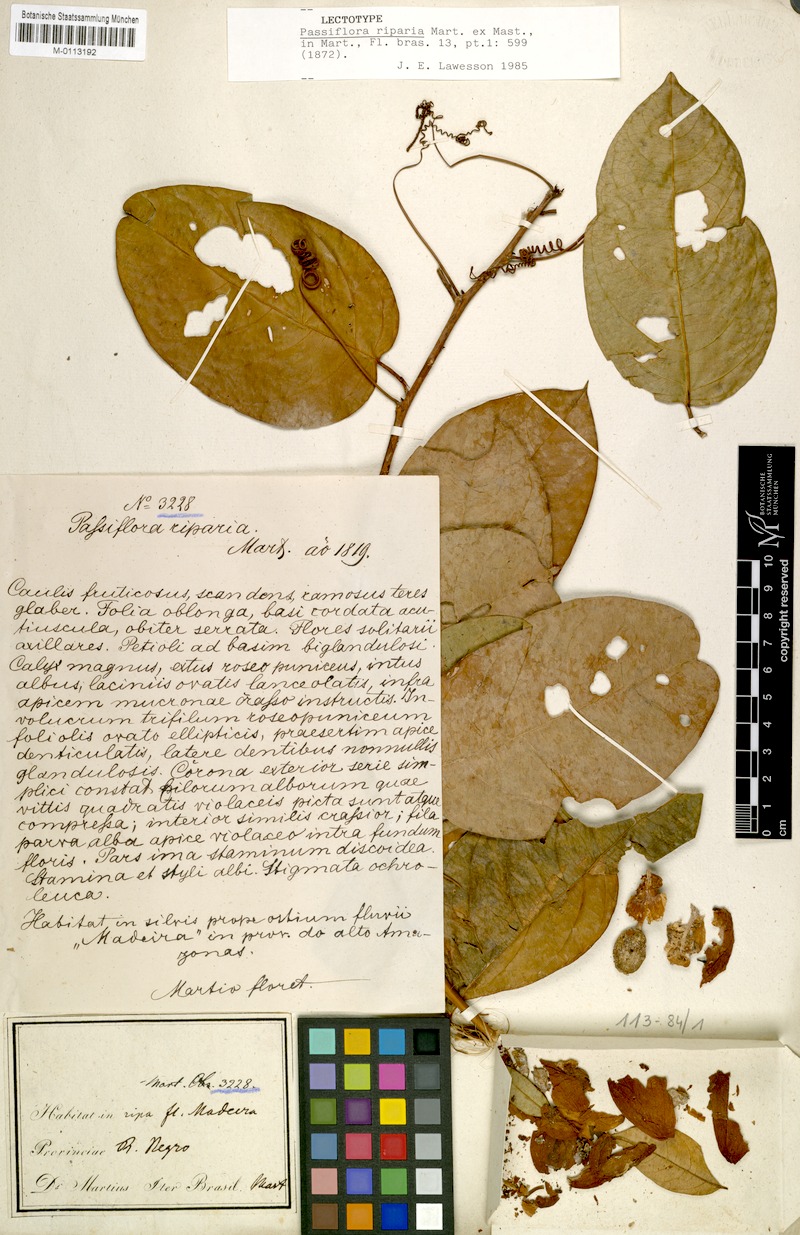 Botanische Staatssammlung München
M-0113192
LECTOTYPE
Passiflora riparia Mart. ex Mast.,
in Mart., Fl. bras. 13, pt.1: 599
(1872).
J. E. Lawesson 1985
No 3228
Passiflora riparia.
Mart. aö 1819.
Caulis fruticosus, scandens, ramosus teres
glaber. Folia oblonga, basi cordata acu-
tiuscula, obiter serrata. Flores solitarii
axillares. Petioli ad basim biglandulosi.
Calyx magnus, extus roseo puniceus, intus
albus, laciniis ovatis lanceolatis, infra
apicem mucronae crasso instructis. In-
volucrum trifilum roseopuniceum
foliolis ovato ellipticis, praesertim apice
denticulatis, latere dentibus nonnullis
glandulosis. Corona exterior serie sim-
plici constat pilorum alborum quae
vittis quadratis violaceis picta sunt atque
compressa; interior similis crassior; fila
parva alba apice violaceo intra fundum
floris. Pars ima staminum discoidea.
Stamina et styli albi. Stigmata ochro-
leuca.
Habitat in silvis prope ostium fluvii
„Madeira" in prov. do alto Ama-
zonas.
Martio floret.
Mart. Obs. 3228.
Habitat in ripa fl. Madeira
Provinciae R. Negro
Dr. Martius Iter Brasil. Mart
113-84/1
BOTANISCHE
STAATSSAMMLUNG
MÜNCHEN
copyright reserved
0 1 2 3 4 5 6 7 8 9 10
cm